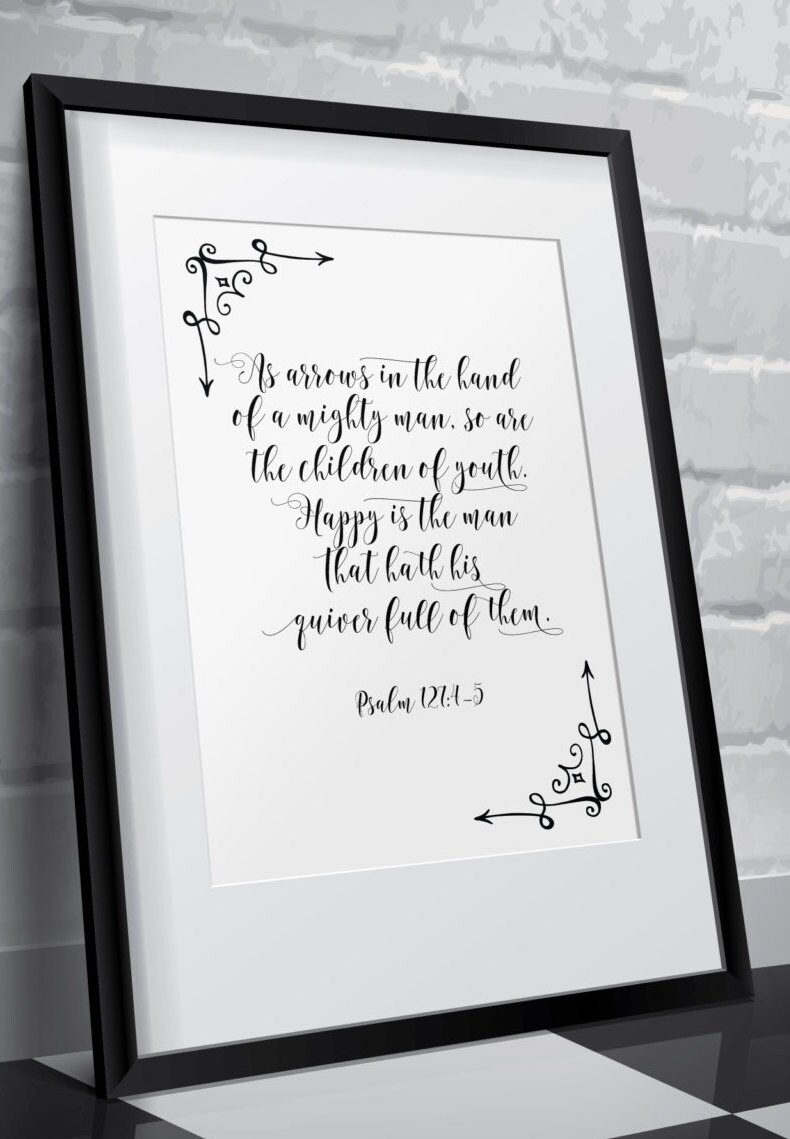 As arrows in the hand
of a mighty man, so are
the children of youth.
Happy is the man
that hath his
quiver full of them.
Psalm 127:4-5